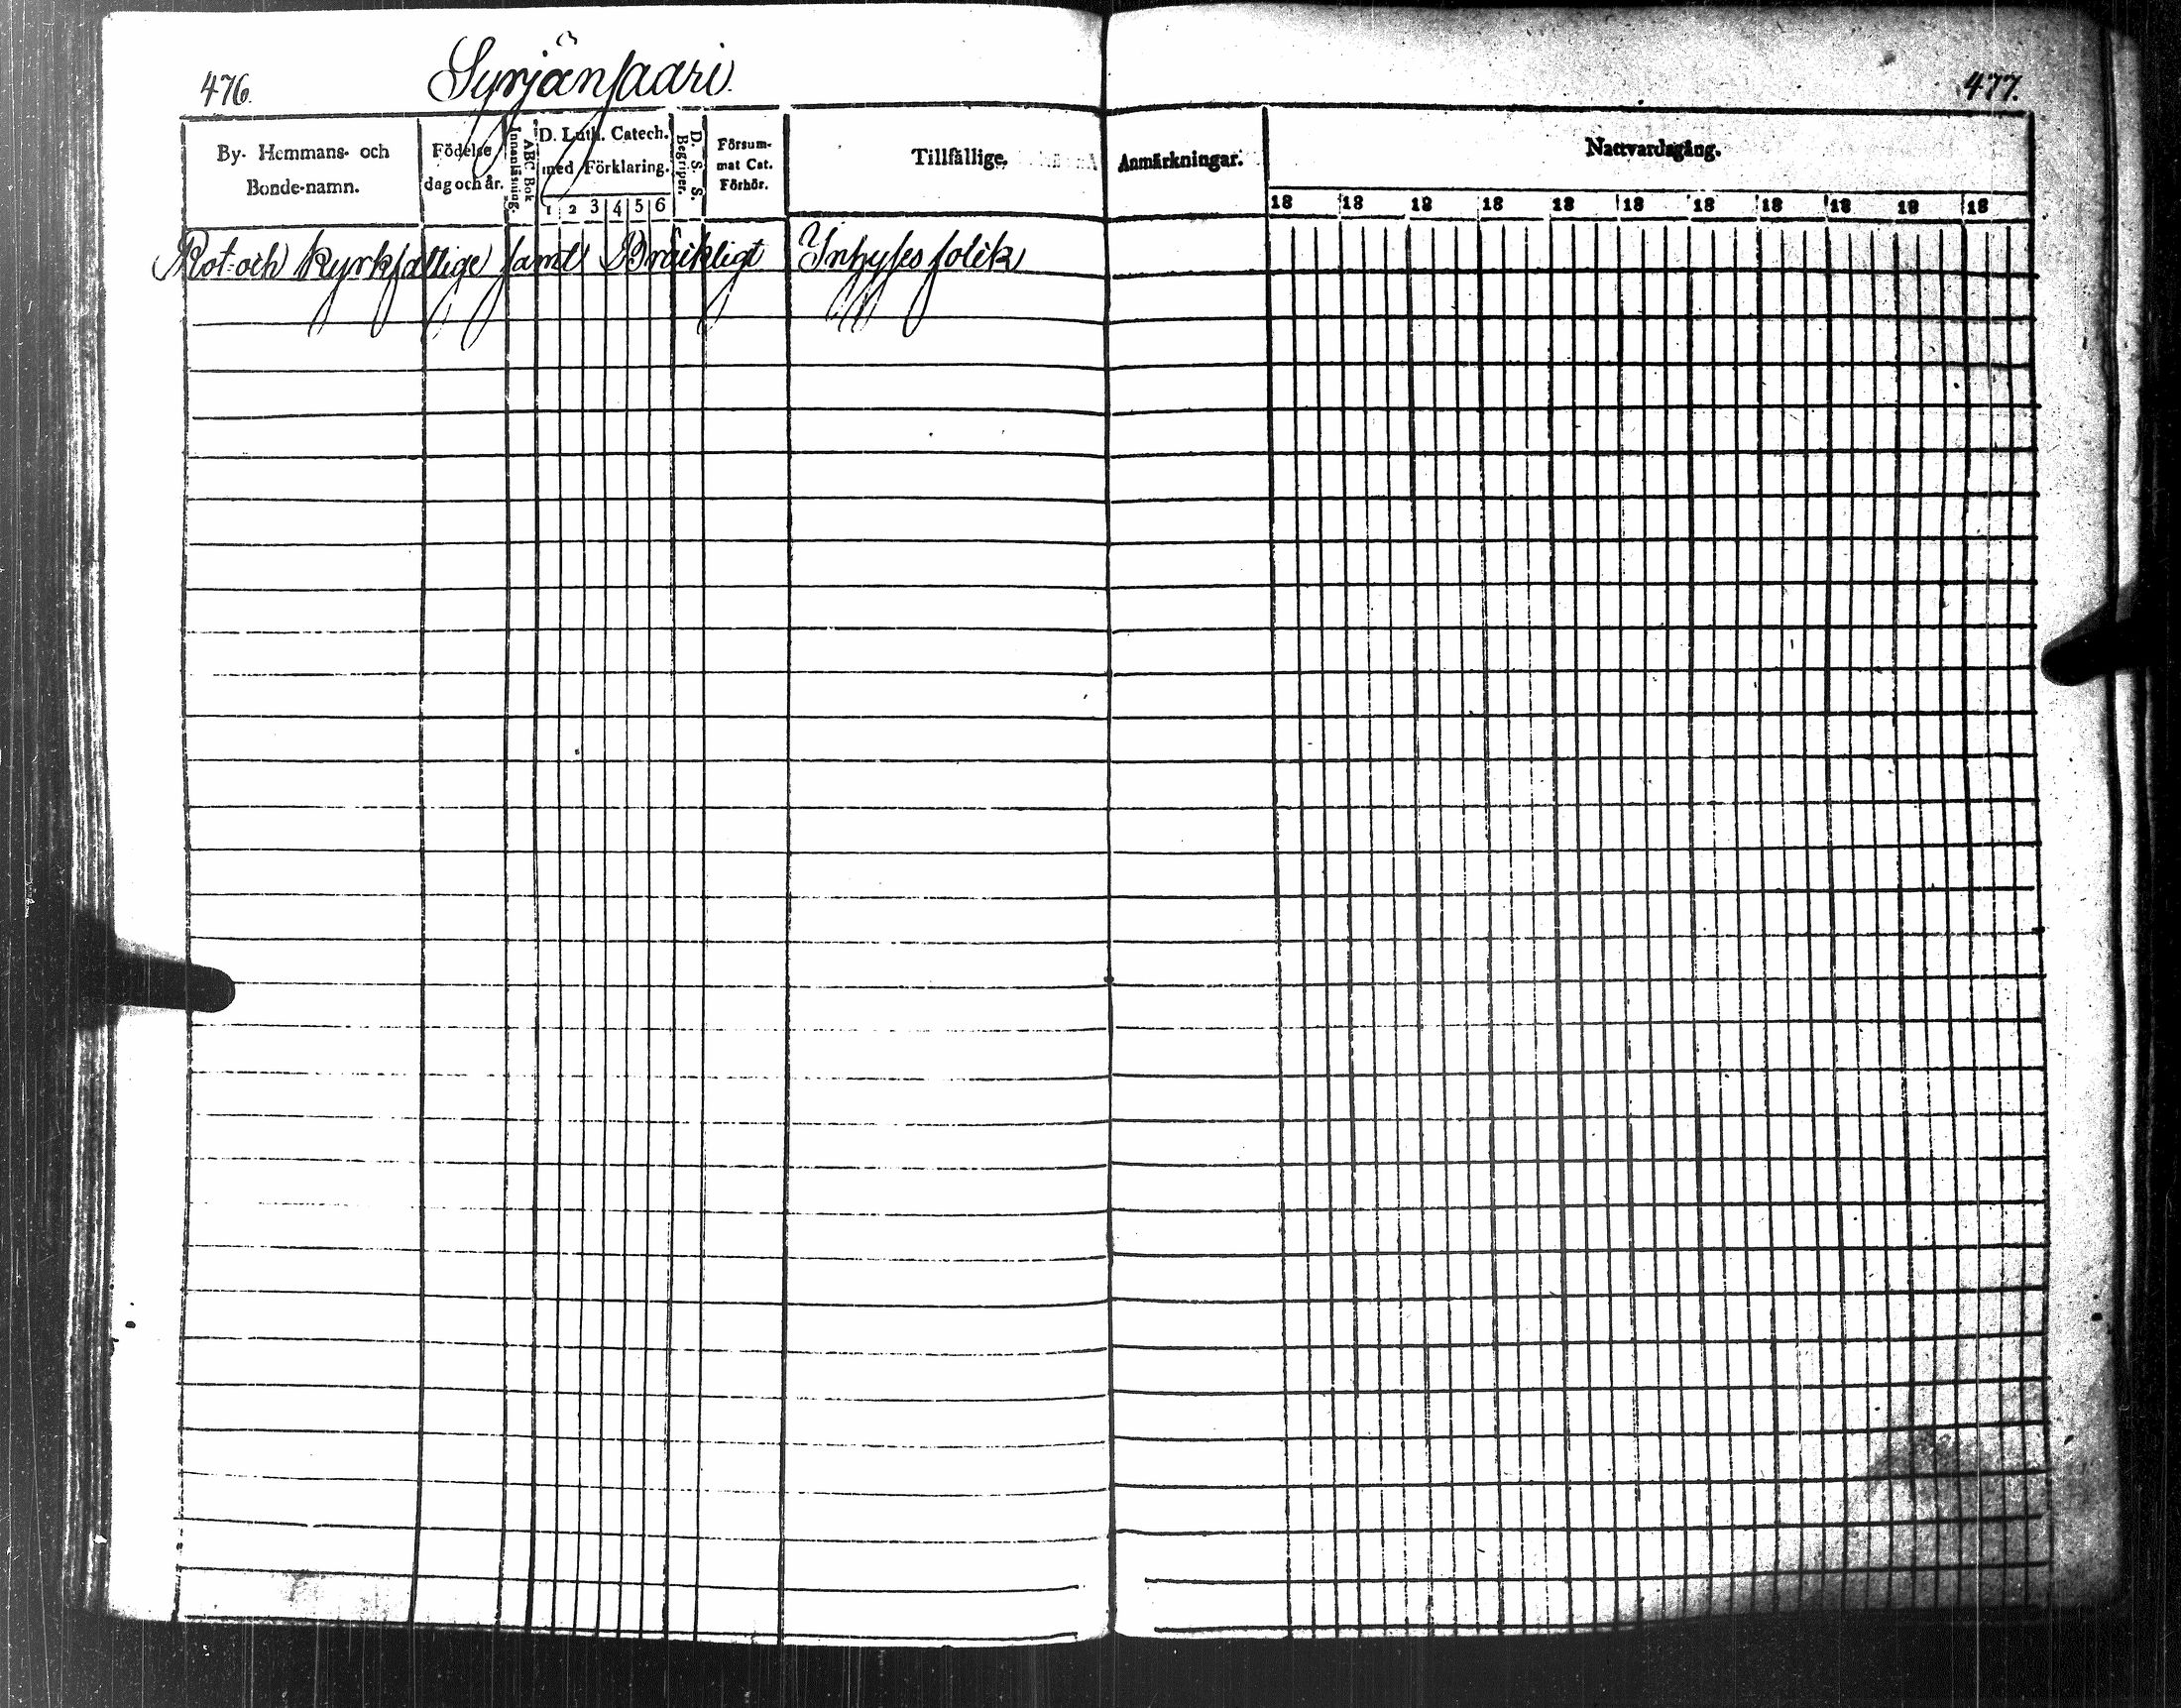 476.
Syrjänsaari.
477.
By- Hemmans- och
Bonde-namn.
Födelse
dag och år.
Innanläsning.
ABC Bok
D. Luth. Catech.
med Förklaring.
1 2 3 4 5 6
D. S. S.
Begriper.
Försum-
mat Cat.
Förhör.
Tillfällige.
Anmärkningar.
Nattvardsgång.
18 18 18 18 18 18 18 18 18 18 18
Rot- och kyrkfattige samt Bräckligt Inhyses folck